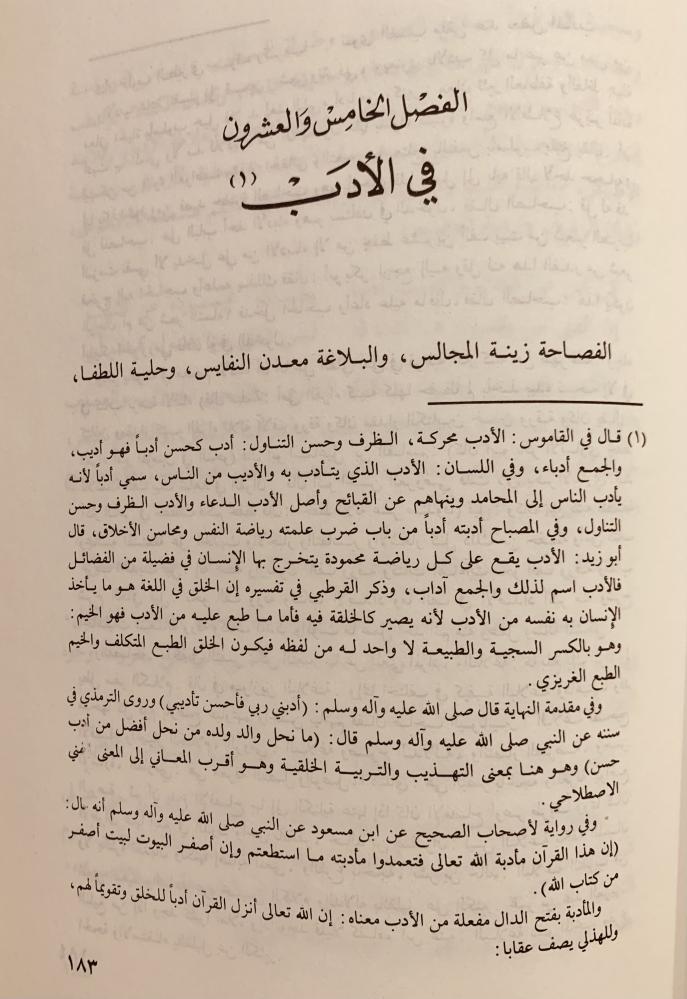 الفصل الخامس والعشرون
في الأدب (١)
الفصاحة زينة المجالس، والبلاغة معدن النفايس، وحلية اللطفا،
(١) قال في القاموس: الأدب محركة، الظرف وحسن التناول: أدب كحسن أدباً فهو أديب،
والجمع أدباء، وفي اللسان: الأدب الذي يتأدب به والأديب من الناس، سمي أدباً لأنه
يأدب الناس إلى المحامد وينهاهم عن القبائح وأصل الأدب الدعاء والأدب الظرف وحسن
التناول، وفي المصباح أدبته أدباً من باب ضرب علمته رياضة النفس ومحاسن الأخلاق، قال
أبو زيد: الأدب يقع على كل رياضة محمودة يتخرج بها الإنسان في فضيلة من الفضائل
فالأدب اسم لذلك والجمع آداب، وذكر القرطبي في تفسيره إن الخلق في اللغة هو ما يأخذ
الإنسان به نفسه من الأدب لأنه يصير كالخلقة فيه فأما ما طبع عليه من الأدب فهو الخيم:
وهو بالكسر السجية والطبيعة لا واحد له من لفظه فيكون الخلق الطبع المتكلف والخيم
الطبع الغريزي.
وفي مقدمة النهاية قال صلى الله عليه وآله وسلم: (أدبني ربي فأحسن تأديبي) وروى الترمذي في
سننه عن النبي صلى الله عليه وآله وسلم قال: (ما نحل والد ولده من نحل أفضل من أدب
حسن) وهو هنا بمعنى التهذيب والتربية الخلقية وهو أقرب المعاني إلى المعنى
الاصطلاحي.
وفي رواية لأصحاب الصحيح عن ابن مسعود عن النبي صلى الله عليه وآله وسلم أنه قال:
(إن هذا القرآن مأدبة الله تعالى فتعمدوا مأدبته ما استطعتم وإن أصفر البيوت لبيت أصفر
من كتاب الله).
والمأدبة بفتح الدال مفعلة من الأدب معناه: إن الله تعالى أنزل القرآن أدباً للخلق وتقويماً لهم،
وللهذلي يصف عقابا:
١٨٣